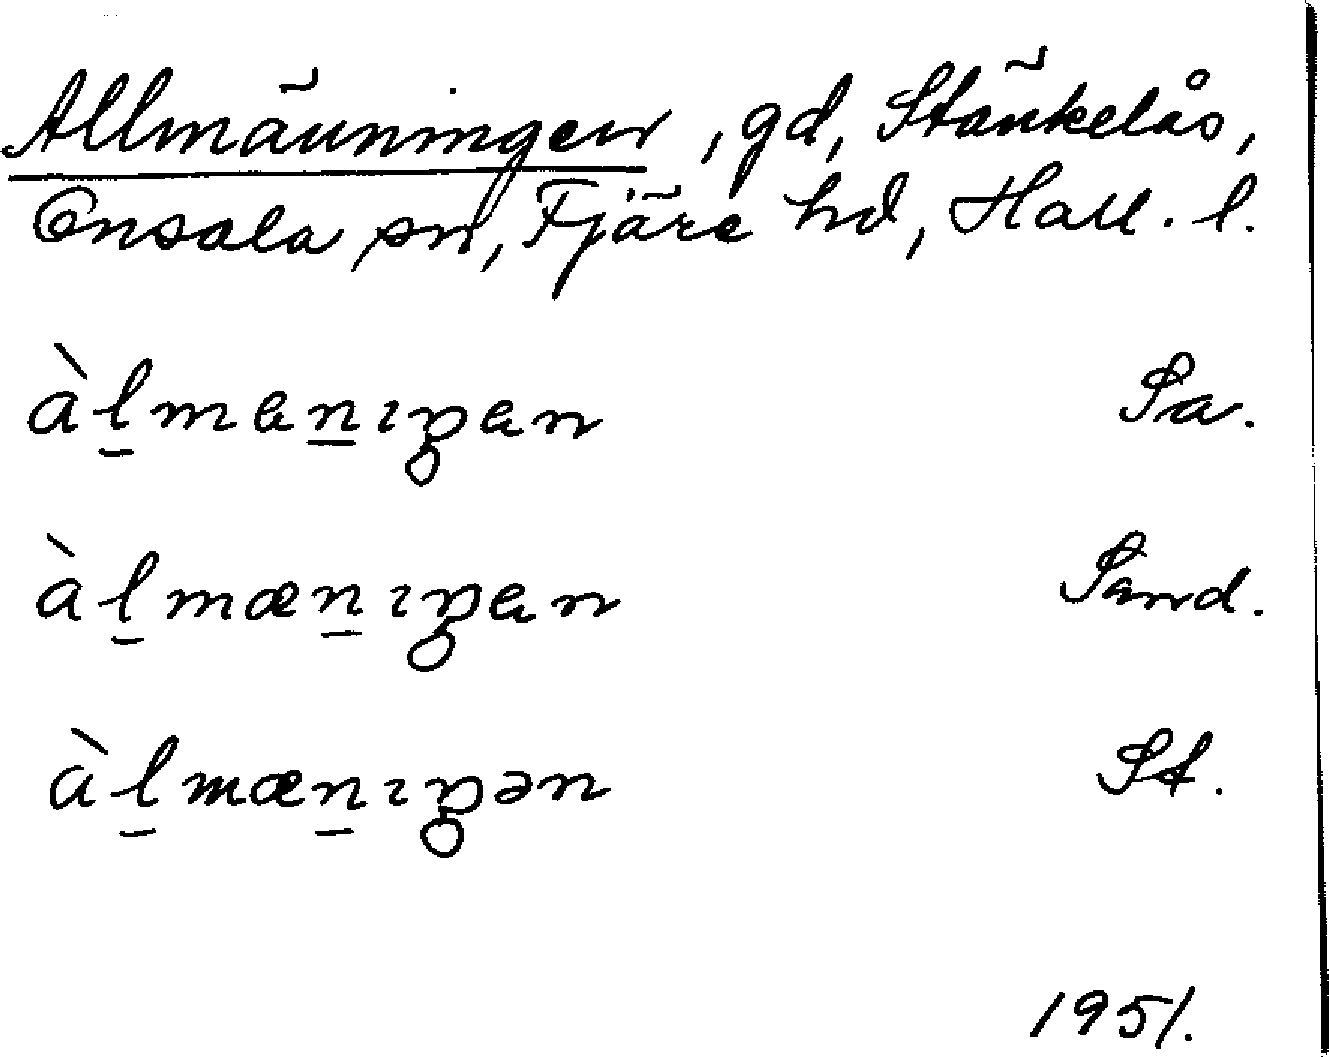 Allmänningen, gd, Stänkelås,
Onsala sn, Fjäre hd, Hall. l.
àl̠mɐn̠ıŋɐn Sa.
àl̠mæn̠ıŋɐn Sand.
àl̠mæn̠ıŋən St.
1951.